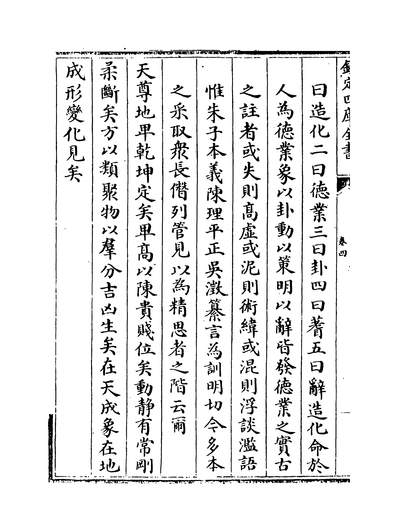 欽定四庫全書
卷四
曰造化二曰德業三曰卦四曰蓍五曰辭造化命於
人為德業象以卦動以策明以辭皆發德業之實古
之註者或失則高虛或泥則術緯或混則浮談濫語
惟朱子本義陳理平正吳澂纂言為訓明切今多本
之采取衆長僭列管見以為精思者之階云爾
天尊地卑乾坤定矣卑高以陳貴賤位矣動靜有常剛
柔斷矣方以類聚物以羣分吉凶生矣在天成象在地
成形變化見矣